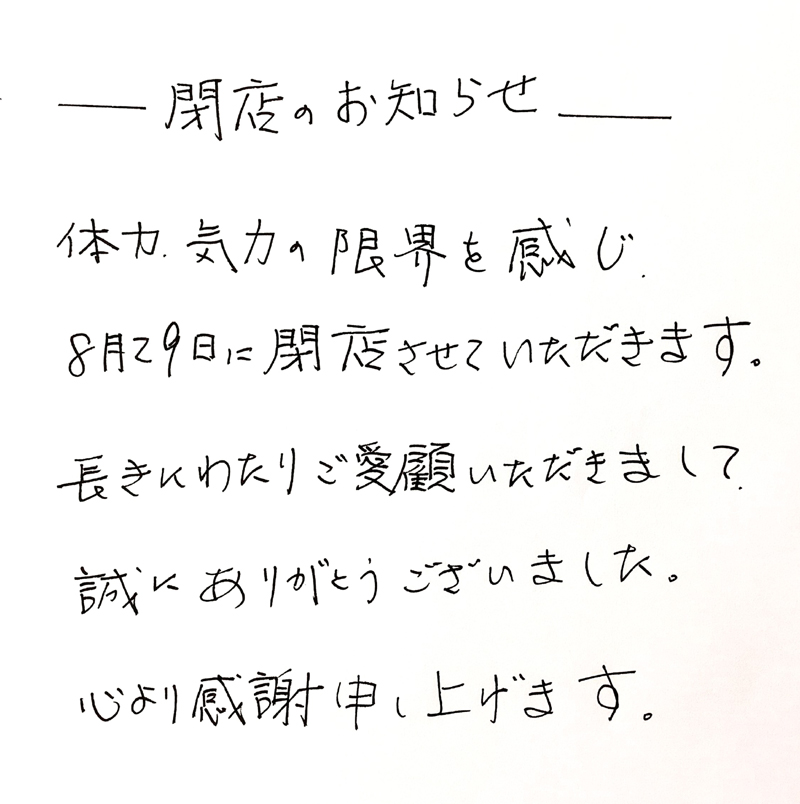 閉店のお知らせ
体力、気力の限界を感じ、
8月29日に閉店させていただきます。
長きにわたりご愛顧いただきまして、
誠にありがとうございました。
心より感謝申し上げます。